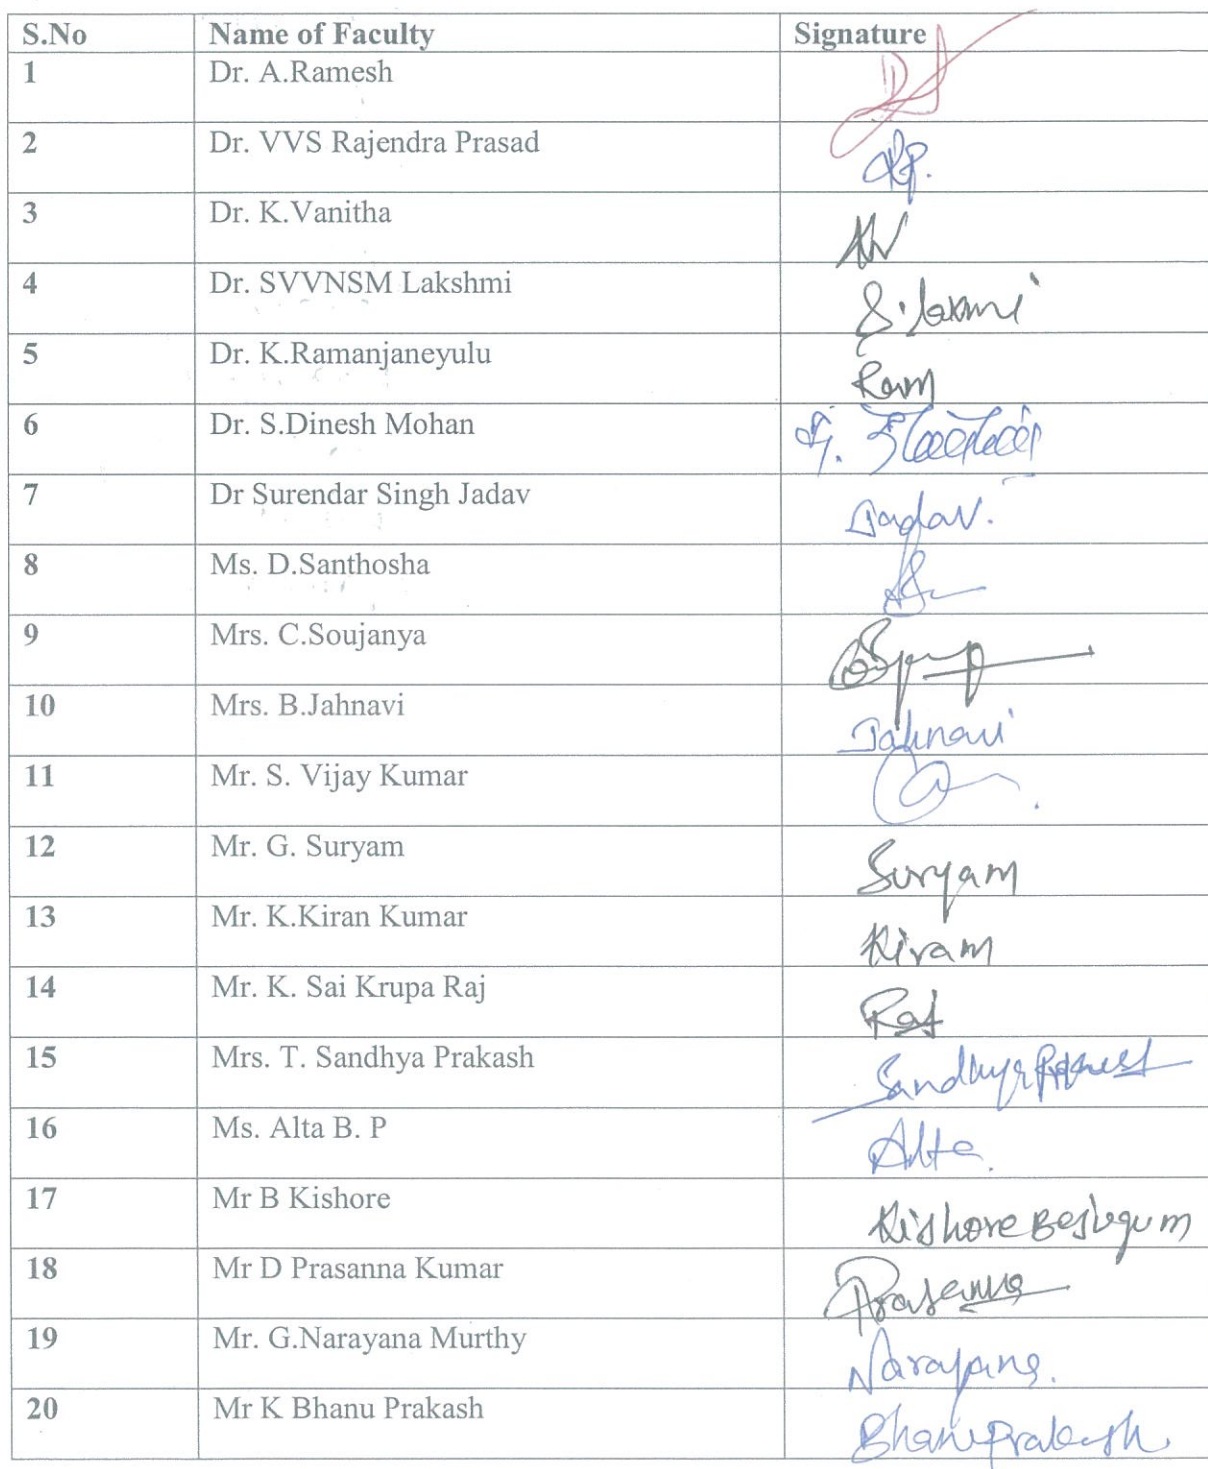 S.No Name of Faculty Signature
1 Dr. A.Ramesh
2 Dr. VVS Rajendra Prasad RP.
3 Dr. K.Vanitha
4 Dr. SVVNSM Lakshmi S. laxmi
5 Dr. K.Ramanjaneyulu Ram
6 Dr. S.Dinesh Mohan
7 Dr Surendar Singh Jadav Jadav.
8 Ms. D.Santhosha
9 Mrs. C.Soujanya
10 Mrs. B.Jahnavi Jahnavi
11 Mr. S. Vijay Kumar
12 Mr. G. Suryam Suryam
13 Mr. K.Kiran Kumar Kiran
14 Mr. K. Sai Krupa Raj Raj
15 Mrs. T. Sandhya Prakash Sandhya Prakash
16 Ms. Alta B. P Alta.
17 Mr B Kishore Kishore
18 Mr D Prasanna Kumar Prasanna
19 Mr. G.Narayana Murthy Narayana.
20 Mr K Bhanu Prakash Bhanu Prakash